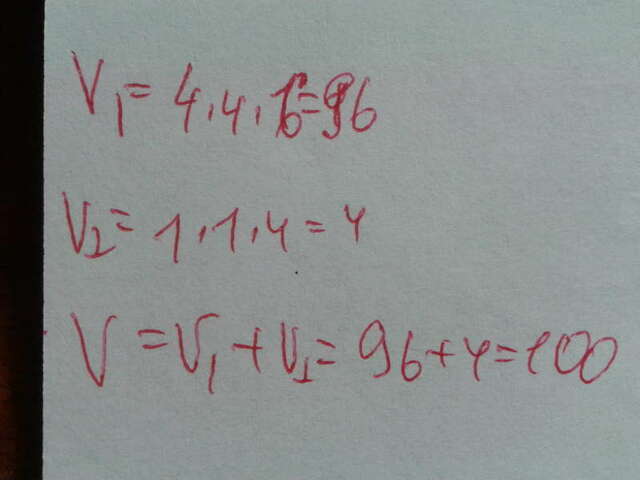 V₁ = 4 . 4 . 6 = 96
V₂ = 1 . 1 . 4 = 4
V = V₁ + V₂ = 96 + 4 = 100